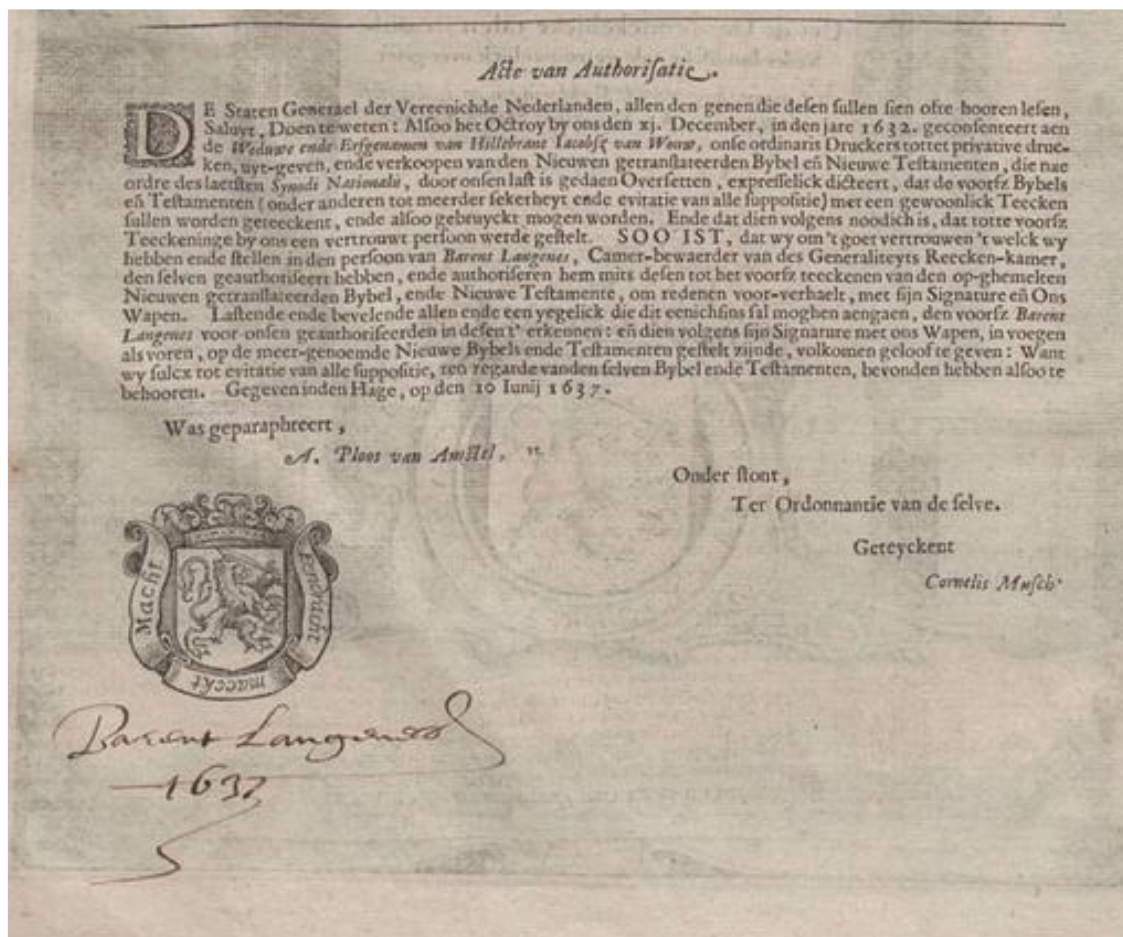 Acte van Authorisatie.
DE Staten Generael der Vereenichde Nederlanden, allen den genen die desen sullen sien ofte hooren lesen,
Saluyt, Doen te weten: Alsoo het Octroy by ons den xj. December, in den jare 1632. geconsenteert aen
de Weduwe ende Erfgenamen van Hillebrant Iacobsz van Wouw, onse ordinaris Druckers tottet privative druc-
ken, uyt-geven, ende verkoopen van den Nieuwen getranslateerden Bybel eñ Nieuwe Testamenten, die nae
ordre des laetsten Synodi Nationalis, door onsen last is gedaen Oversetten, expresselick dicteert, dat de voorsz Bybels
eñ Testamenten (onder anderen tot meerder sekerheyt ende evitatie van alle suppositie) met een gewoonlick Teecken
sullen worden geteeckent, ende alsoo gebruyckt mogen worden. Ende dat dien volgens noodich is, dat totte voorsz
Teeckeninge by ons een vertrouwt persoon werde gestelt. SOO IST, dat wy om 't goet vertrouwen 't welck wy
hebben ende stellen in den persoon van Barent Langenes, Camer-bewaerder van des Generaliteyts Reecken-kamer,
den selven geauthoriseert hebben, ende authoriseren hem mits desen tot het voorsz teeckenen van den op-ghemelten
Nieuwen getranslateerden Bybel, ende Nieuwe Testamente, om redenen voor-verhaelt, met sijn Signature eñ Ons
Wapen. Lastende ende bevelende allen ende een yegelick die dit eenichsins sal moghen aengaen, den voorsz Barent
Langenes voor onsen geauthoriseerden in desen t' erkennen: eñ dien volgens sijn Signature met ons Wapen, in voegen
als voren, op de meer-genoemde Nieuwe Bybels ende Testamenten gestelt zijnde, volkomen geloof te geven: Want
wy sulcx tot evitatie van alle suppositie, ten regarde vanden selven Bybel ende Testamenten, bevonden hebben alsoo te
behooren. Gegeven inden Hage, op den 10 Iunij 1637.
Was geparaphreert,
A. Ploos van Amstel, vt.
Onder stont,
Ter Ordonnantie van de selve.
Geteyckent
Cornelis Musch
Eendracht
maeckt
Macht
Barent Langenes
1637